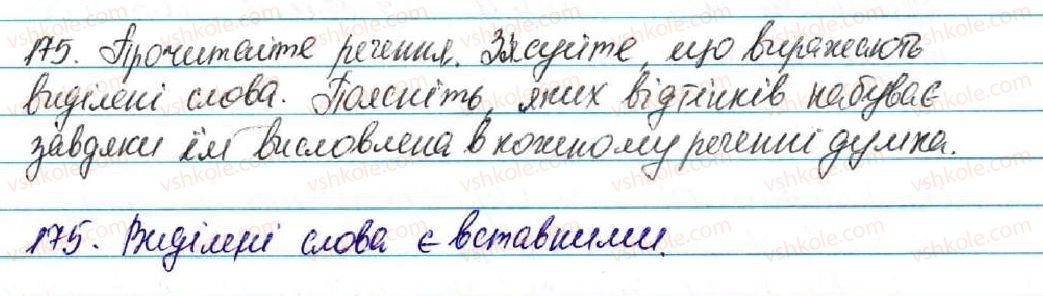 175. Прочитайте речення. З'ясуйте, що виражають
виділені слова. Поясніть, яких відтінків набуває
завдяки їм висловлена в кожному реченні думка.
175. Виділені слова є вставними.